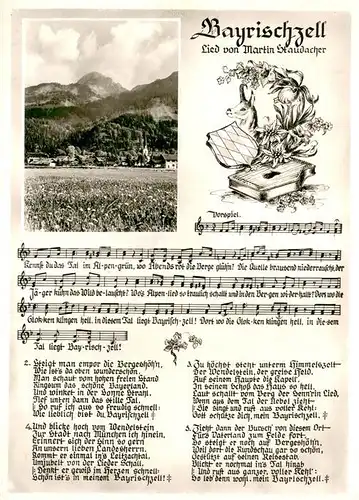 Bayrischzell
Lied von Martin Staudacher
Vorspiel.
Kennst du das Tal im Al-pen-grün, wo Abends rot die Berge glühn? Die Quelle brausend niederrauscht, der
Jä-ger kühn das Wild be-lauscht? Wo's Alpen-lied so traulich schallt und in den Ber-gen wi-der-hallt? Dort wo die
Glok-ken klingen hell, in diesem Tal liegt Bayrisch-zell! Dort wo die Glok-ken klingen hell, in die-sem
Tal liegt Bay-risch-zell!
2. Steigt man empor die Bergeshöh'n,
Wie ist's da oben wunderschön.
Man schaut von hohen freien Stand
Ringsum das schöne Bayerland.
Und winkt in der Sonne Strahl,
Tief unten dann das stille Tal.
So ruf ich aus so freudig schnell:
Wie lieblich bist du Bayrischzell!
3. Zu höchst steht unterm Himmelszelt
Der Wendelstein, der greise Held.
Auf seinem Haupte die Kapell',
In seinem Schoß das Haus so hell.
Laut schallt vom Berg der Senn'rin Lied,
Wenn aus dem Tal der Nebel zieht
Sie singt und ruft aus voller Kehl:
Gott schütze dich, mein Bayrischzell!
4. Und blicke hoch vom Wendelstein
Zur Stadt nach München ich hinein,
Erinnert sich der Sinn so gern
An unsern lieben Landesherrn.
Kommt er einmal in's Leitzachtal,
Umjubelt von der Lieder Schall.
Denkt er gewiß im Herzen schnell:
Schön ist's in meinem Bayrischzell!
5. Zieht dann der Bursch von diesem Ort
Fürs Vaterland zum Felde fort,
So steigt er noch auf Bergeshöh'n,
Will dort die Kundschar gar so schön.
Gestützt auf seinen Reisestab
Blickt er nochmal in's Tal hinab
Und ruft aus ganzer voller Kehl:
So leb' denn wohl, mein Bayrischzell!